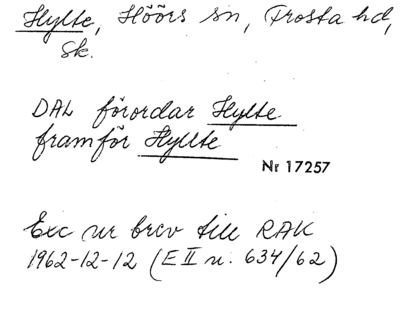 Hylte, Höörs sn, Frosta hd,
Sk.
DAL förordar Hylte
framför Hyllte
Nr 17257
Exc ur brev till RAK
1962-12-12 (E II u. 634/62)